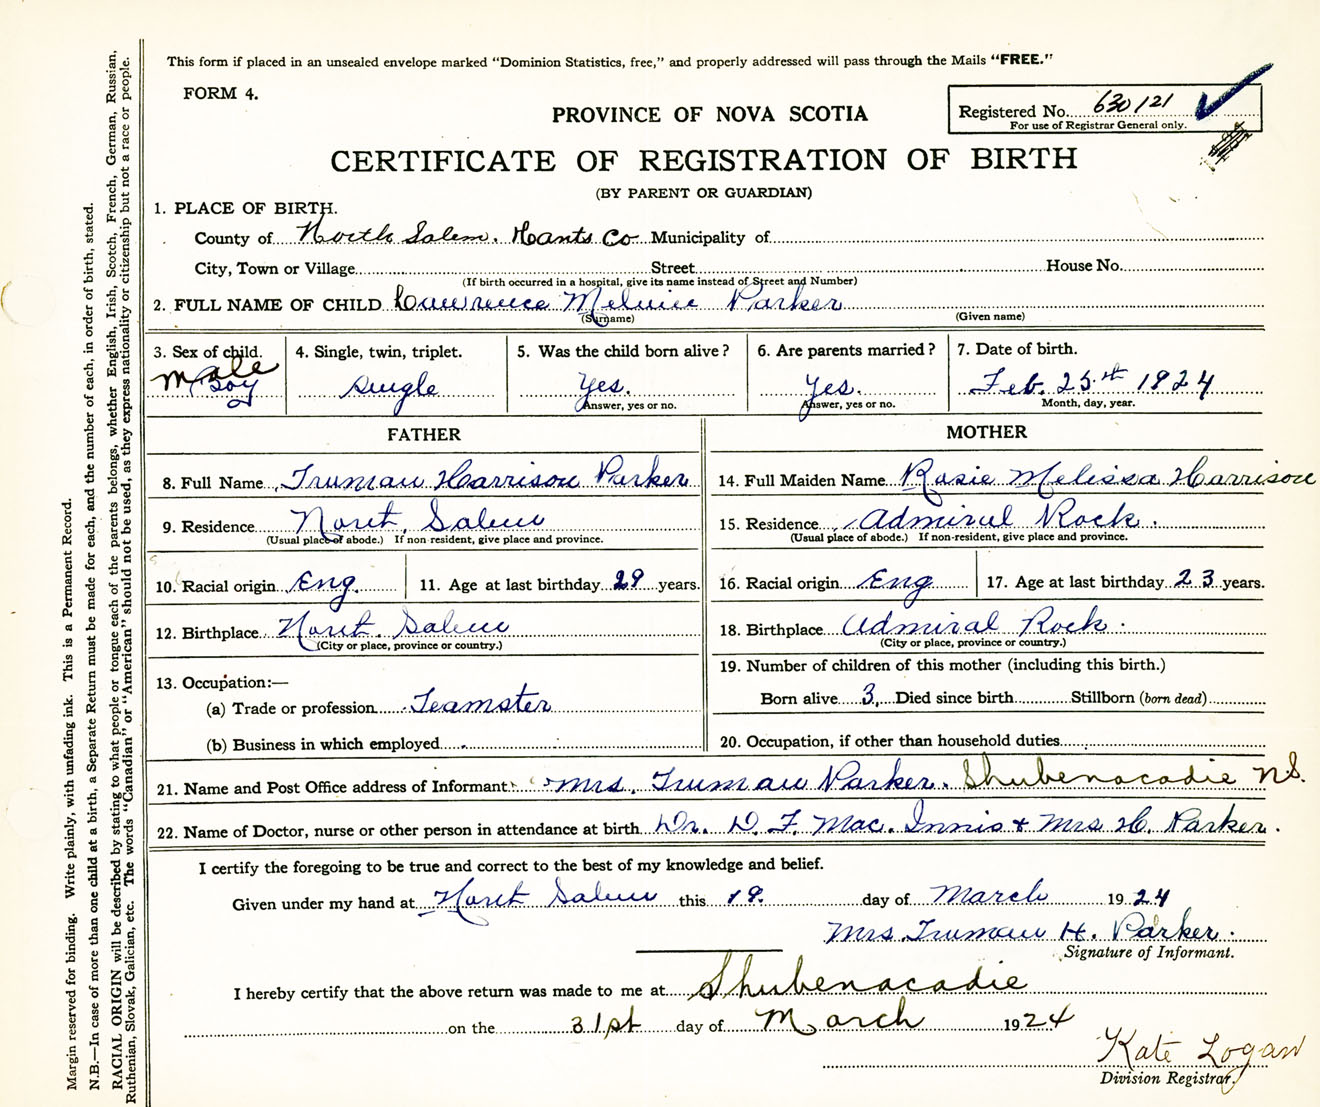 This form if placed in an unsealed envelope marked "Dominion Statistics, free," and properly addressed will pass through the Mails "FREE."
FORM 4.
PROVINCE OF NOVA SCOTIA
Registered No. 630121
For use of Registrar General only.
CERTIFICATE OF REGISTRATION OF BIRTH
(BY PARENT OR GUARDIAN)
1. PLACE OF BIRTH.
County of North Salem. Hants Co Municipality of
City, Town or Village Street House No.
(If birth occurred in a hospital, give its name instead of Street and Number)
2. FULL NAME OF CHILD Lawrence Melvin Parker
(Surname) (Given name)
3. Sex of child. 4. Single, twin, triplet. 5. Was the child born alive? 6. Are parents married? 7. Date of birth.
male
Boy single Yes. Yes. Feb. 25th 1924
Answer, yes or no. Answer, yes or no. Month, day, year.
FATHER
8. Full Name Truman Harrison Parker
9. Residence Noret. Salem
(Usual place of abode.) If non-resident, give place and province.
10. Racial origin Eng. 11. Age at last birthday 29 years.
12. Birthplace Noret. Salem
(City or place, province or country.)
13. Occupation:—
(a) Trade or profession Teamster
(b) Business in which employed
MOTHER
14. Full Maiden Name Rosie Melissa Harrison
15. Residence Admiral Rock.
(Usual place of abode.) If non-resident, give place and province.
16. Racial origin Eng 17. Age at last birthday 23 years.
18. Birthplace Admiral Rock.
(City or place, province or country.)
19. Number of children of this mother (including this birth.)
Born alive 3. Died since birth Stillborn (born dead)
20. Occupation, if other than household duties
21. Name and Post Office address of Informant Mrs. Truman Parker. Shubenacadie N.S.
22. Name of Doctor, nurse or other person in attendance at birth Dr. D. F. Mac. Innis + Mrs H. Parker.
I certify the foregoing to be true and correct to the best of my knowledge and belief.
Given under my hand at Noret Salem this 19. day of March 1924
Mrs. Truman H. Parker.
Signature of Informant.
I hereby certify that the above return was made to me at Shubenacadie
on the 31st day of March 1924
Kate Logan
Division Registrar.
Margin reserved for binding. Write plainly, with unfading ink. This is a Permanent Record.
N.B.—In case of more than one child at a birth, a Separate Return must be made for each, and the number of each, in order of birth, stated.
RACIAL ORIGIN will be described by stating to what people or tongue each of the parents belongs, whether English, Irish, Scotch, French, German, Russian,
Ruthenian, Slovak, Galician, etc. The words "Canadian" or "American" should not be used, as they express nationality or citizenship but not a race or people.